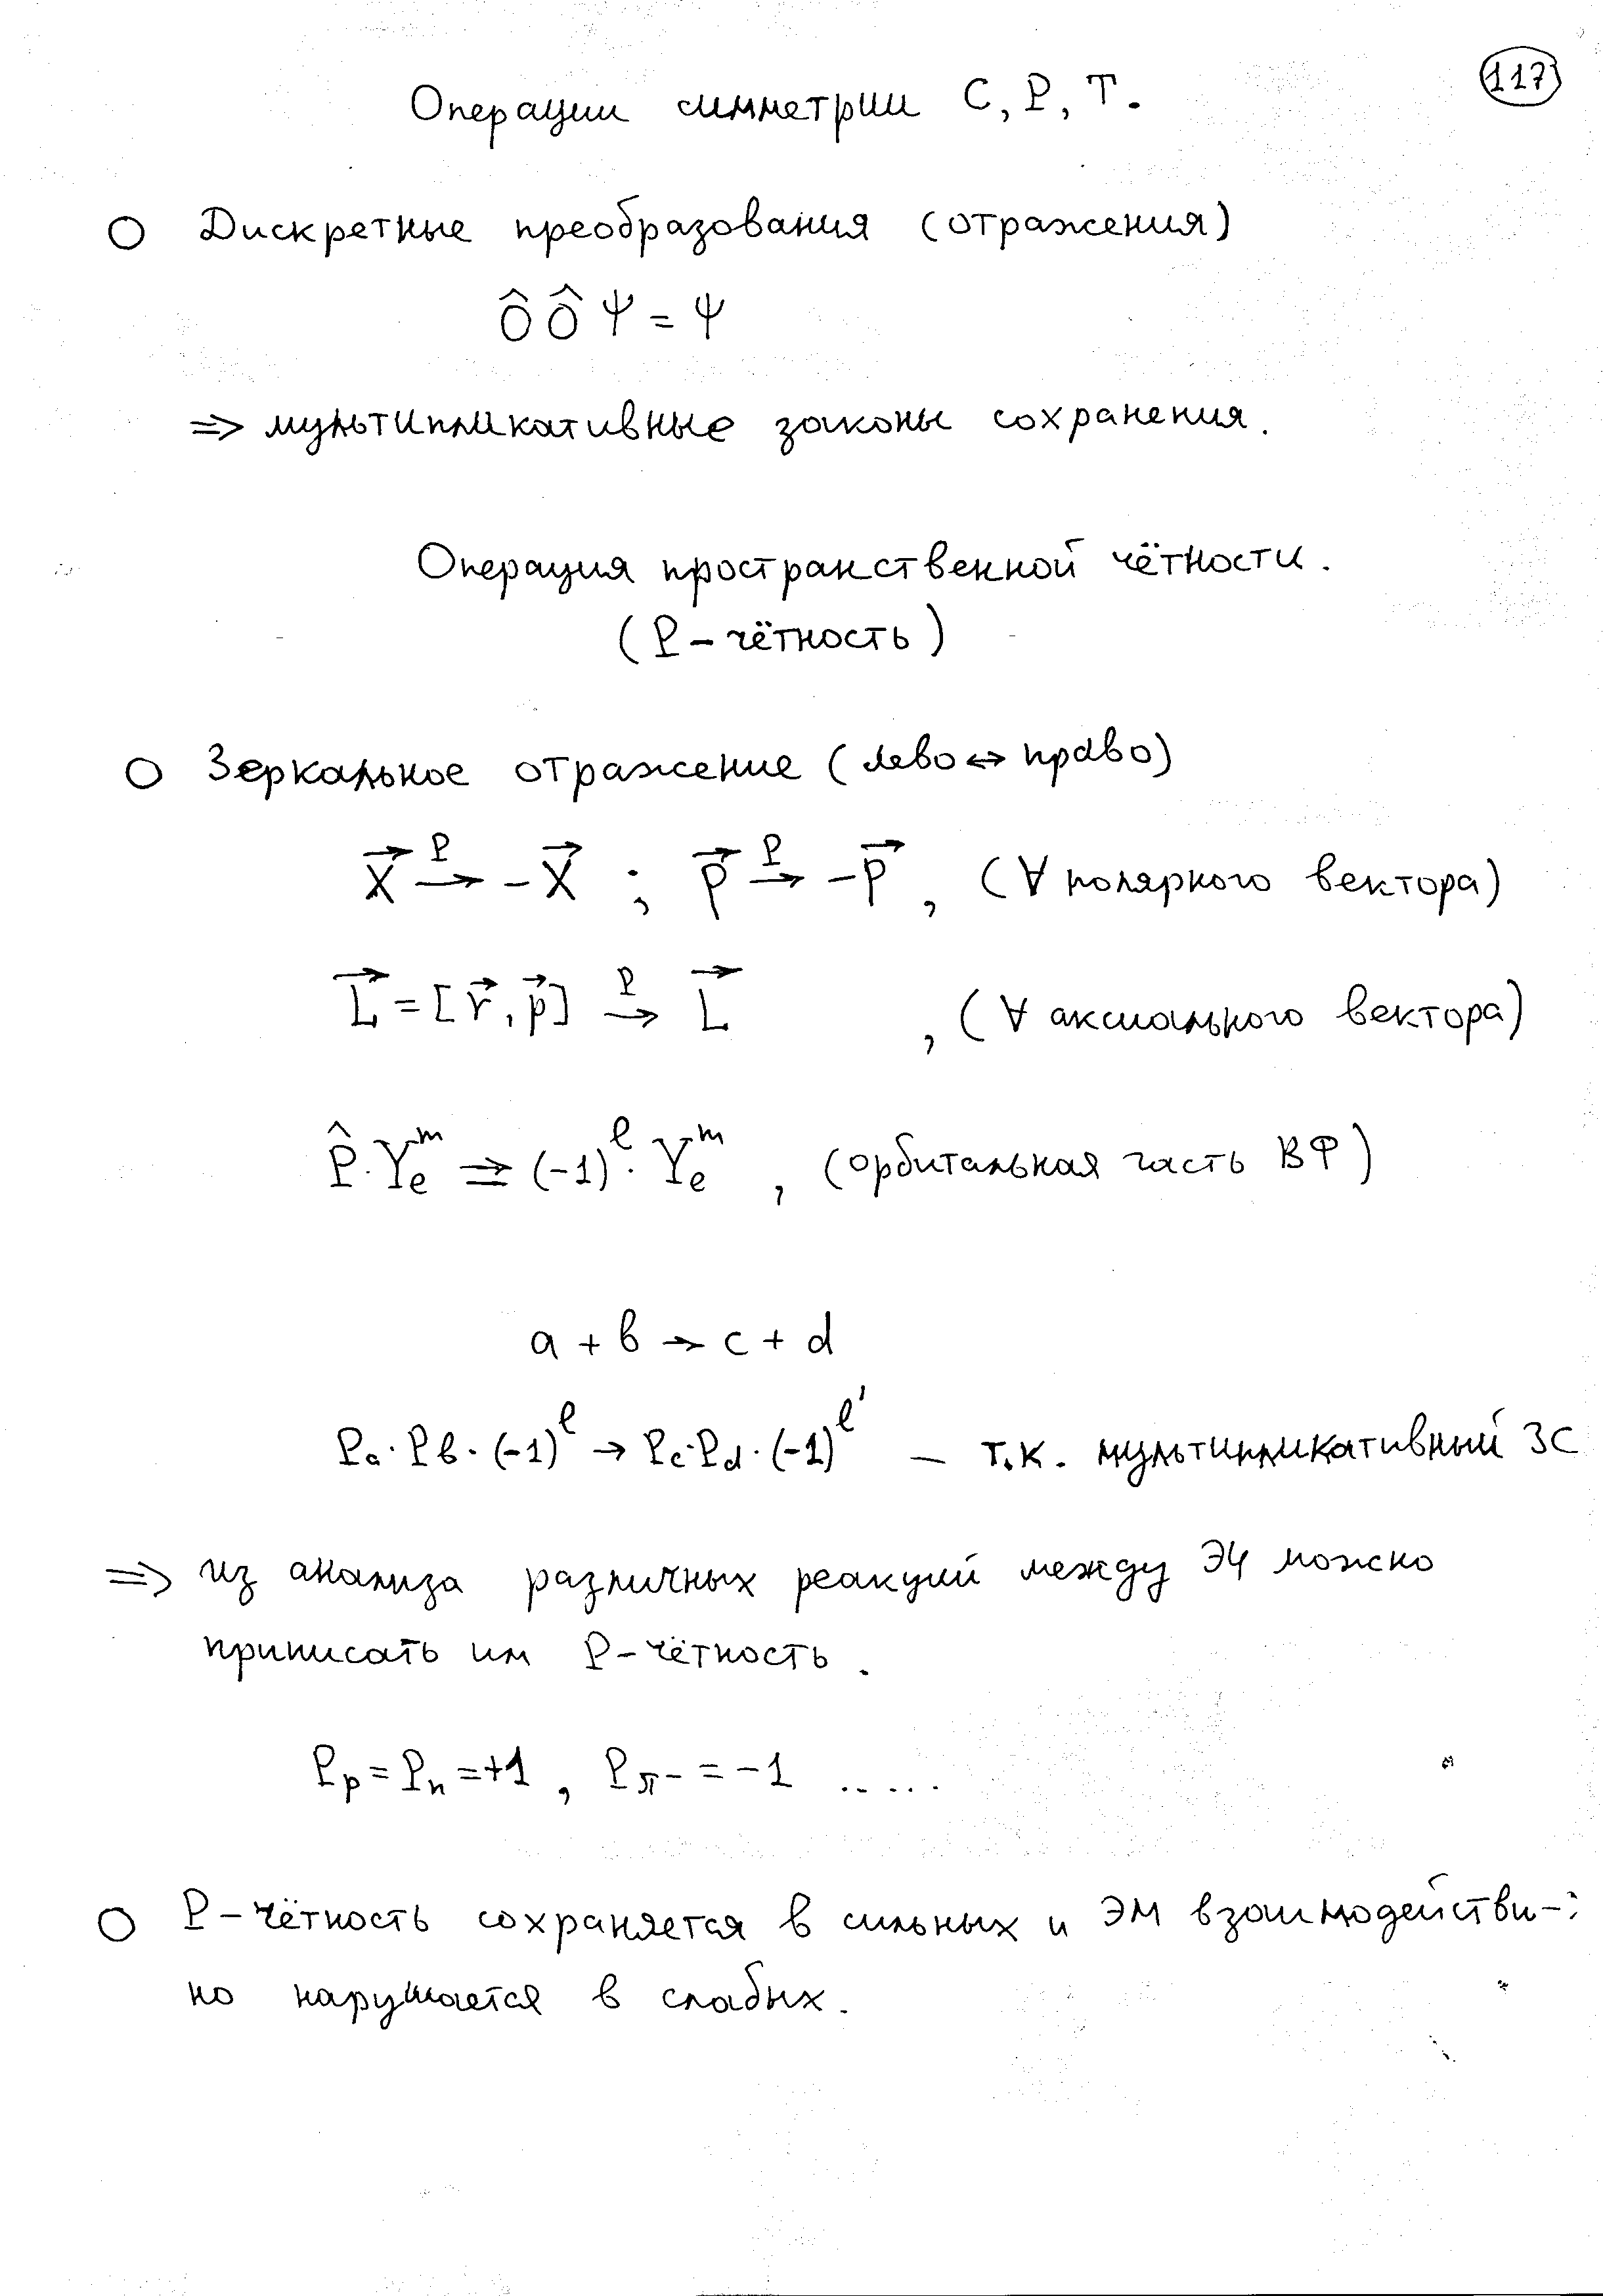 117
Операции симметрии C, P, T.
○ Дискретные преобразования (отражения)
Ô Ô Ψ = Ψ
⇒ мультипликативные законы сохранения.
Операция пространственной чётности.
(P – чётность)
○ Зеркальное отражение (лево ↔ право)
x⃗ →ᴾ –x⃗ ; p⃗ →ᴾ –p⃗ , (∀ полярного вектора)
L⃗ = [r⃗, p⃗] →ᴾ L⃗ , (∀ аксиального вектора)
P̂·Yₑᵐ ⇒ (-1)^ℓ · Yₑᵐ , (орбитальная часть ВФ)
a + b → c + d
Pa·Pb·(-1)^ℓ → Pc·Pd·(-1)^ℓ' – т.к. мультипликативный ЗС
⇒ из анализа различных реакций между ЭЧ можно
приписать им P–чётность.
Pp = Pn = +1 , Pπ– = –1 .....
○ P–чётность сохраняется в сильных и ЭМ взаимодействи-
но нарушается в слабых.